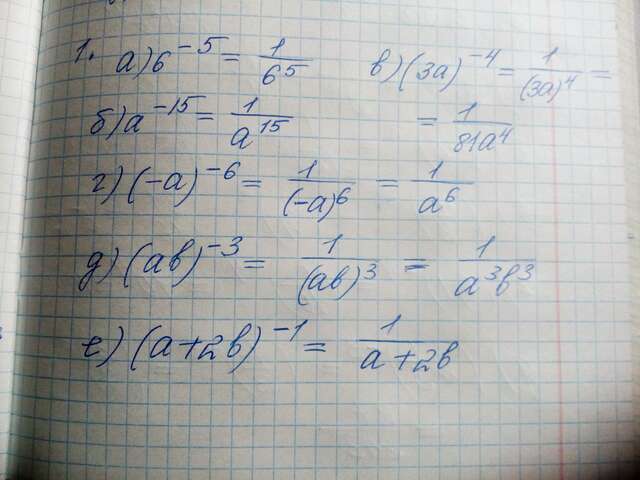 1. а) 6^-5 = 1/6^5 в) (3a)^-4 = 1/(3a)^4 =
б) a^-15 = 1/a^15 = 1/81a^4
г) (-a)^-6 = 1/(-a)^6 = 1/a^6
д) (ab)^-3 = 1/(ab)^3 = 1/a^3b^3
е) (a+2b)^-1 = 1/a+2b